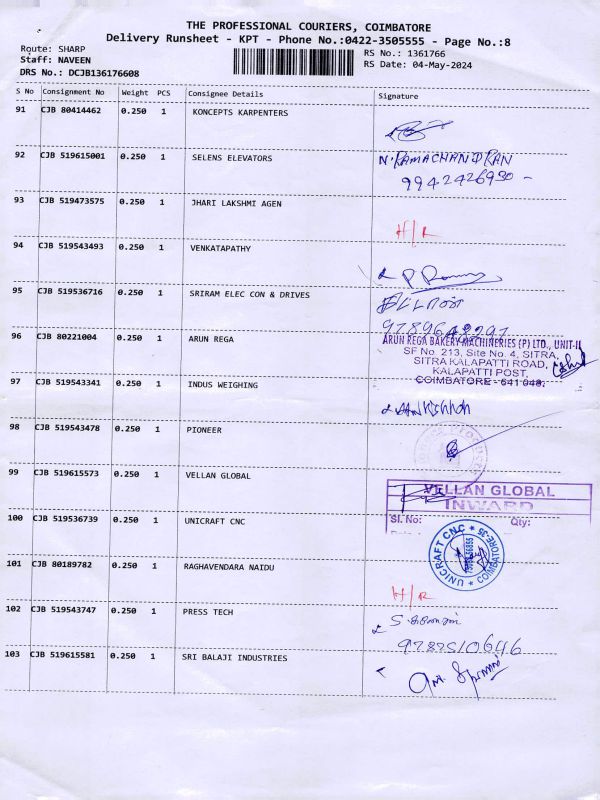 THE PROFESSIONAL COURIERS, COIMBATORE
Delivery Runsheet - KPT - Phone No.:0422-3505555 - Page No.:8
Route: SHARP
Staff: NAVEEN
DRS No.: DCJB136176608
RS No.: 1361766
RS Date: 04-May-2024
S No Consignment No Weight PCS Consignee Details Signature
91 CJB 80414462 0.250 1 KONCEPTS KARPENTERS
92 CJB 519615001 0.250 1 SELENS ELEVATORS N.RAMACHANDRAN
93 CJB 519473575 0.250 1 JHARI LAKSHMI AGEN
H/R
94 CJB 519543493 0.250 1 VENKATAPATHY
95 CJB 519536716 0.250 1 SRIRAM ELEC CON & DRIVES
96 CJB 80221004 0.250 1 ARUN REGA
ARUN REGA BAKERY MACHINERIES (P) LTD., UNIT-II
SF No. 213, Site No. 4, SITRA,
SITRA KALAPATTI ROAD,
KALAPATTI POST,
COIMBATORE - 641 048.
97 CJB 519543341 0.250 1 INDUS WEIGHING
98 CJB 519543478 0.250 1 PIONEER
99 CJB 519615573 0.250 1 VELLAN GLOBAL
VELLAN GLOBAL
INWARD
Sl. No: Qty:
100 CJB 519536739 0.250 1 UNICRAFT CNC
UNICRAFT CNC * COIMBATORE-35 *
101 CJB 80189782 0.250 1 RAGHAVENDARA NAIDU
H/R
102 CJB 519543747 0.250 1 PRESS TECH
9787510646
103 CJB 519615581 0.250 1 SRI BALAJI INDUSTRIES